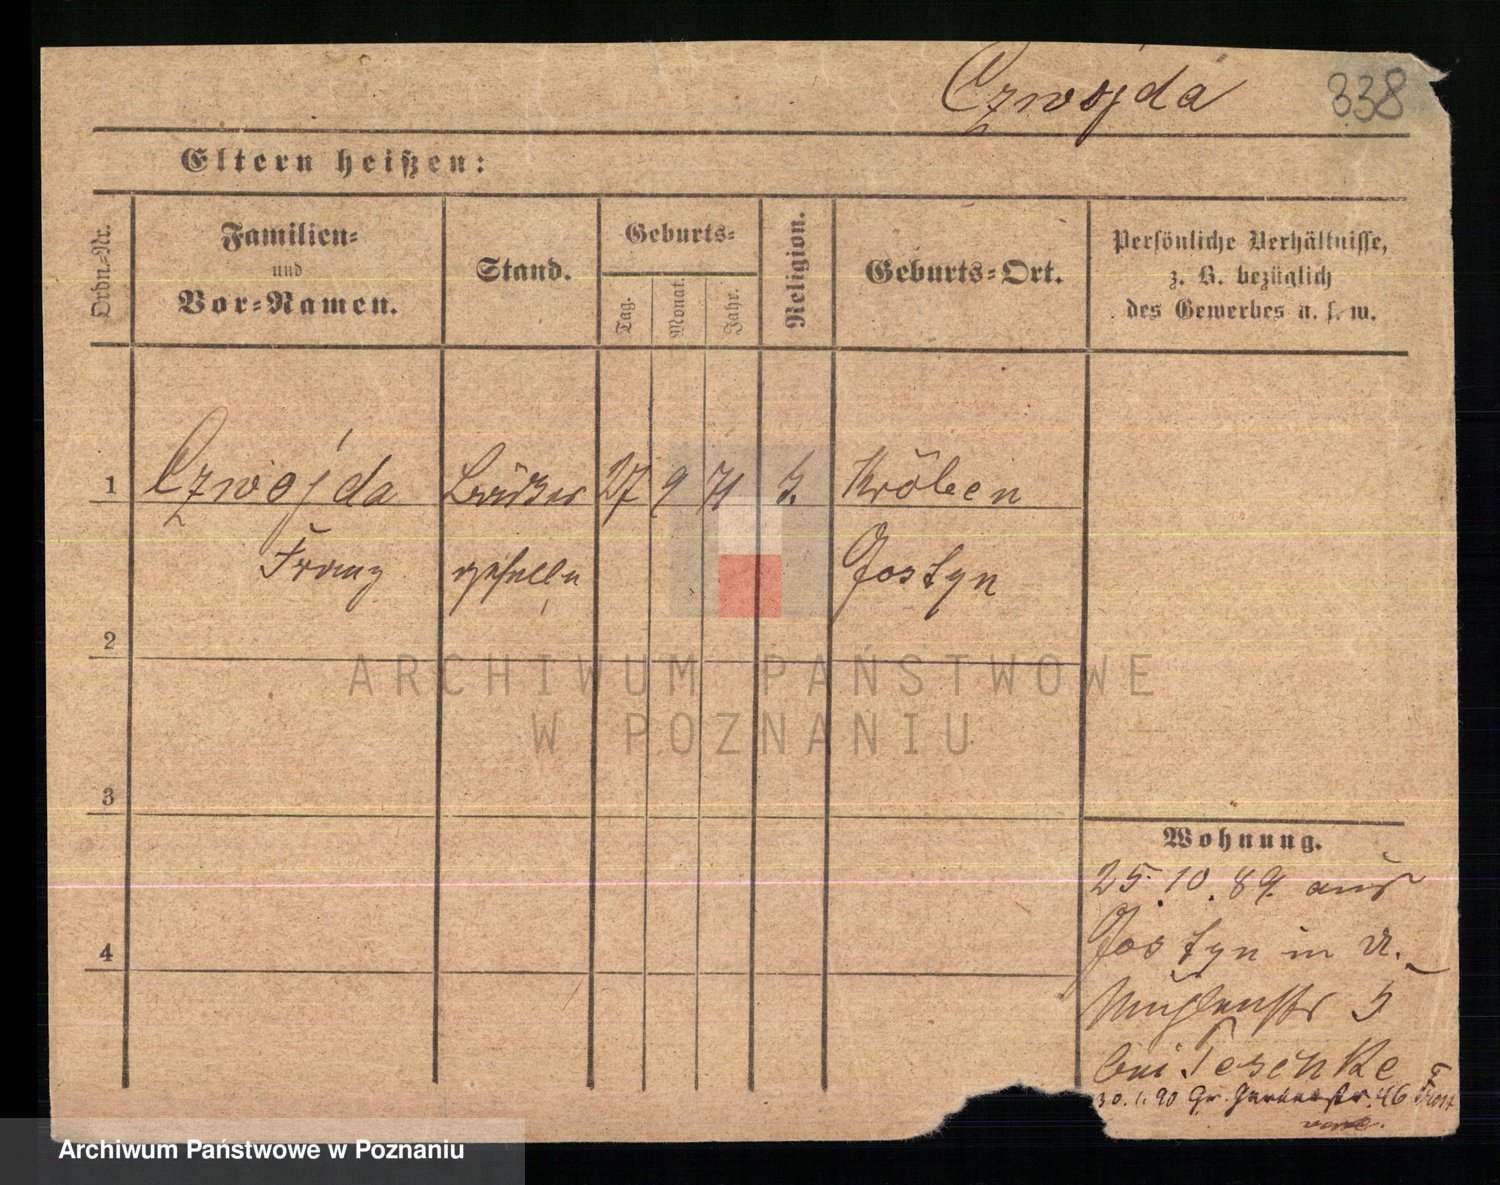 Czwójda 338
Eltern heißen:
Ordn.-Nr.
Familien-
und
Vor-Namen.
Stand.
Geburts-
Tag.
Monat.
Jahr.
Religion.
Geburts-Ort.
Persönliche Verhältnisse,
z. B. bezüglich
des Gewerbes u. s. w.
1 Czwójda 27 9 71 Kröben
Franz geselle Gostyn
2
3
4
Wohnung.
25.10.89. aus
Gostyn in
Mühlenstr 5
bei Jeschke
30.1.90 Gr. 46
ARCHIWUM PAŃSTWOWE
W POZNANIU
Archiwum Państwowe w Poznaniu